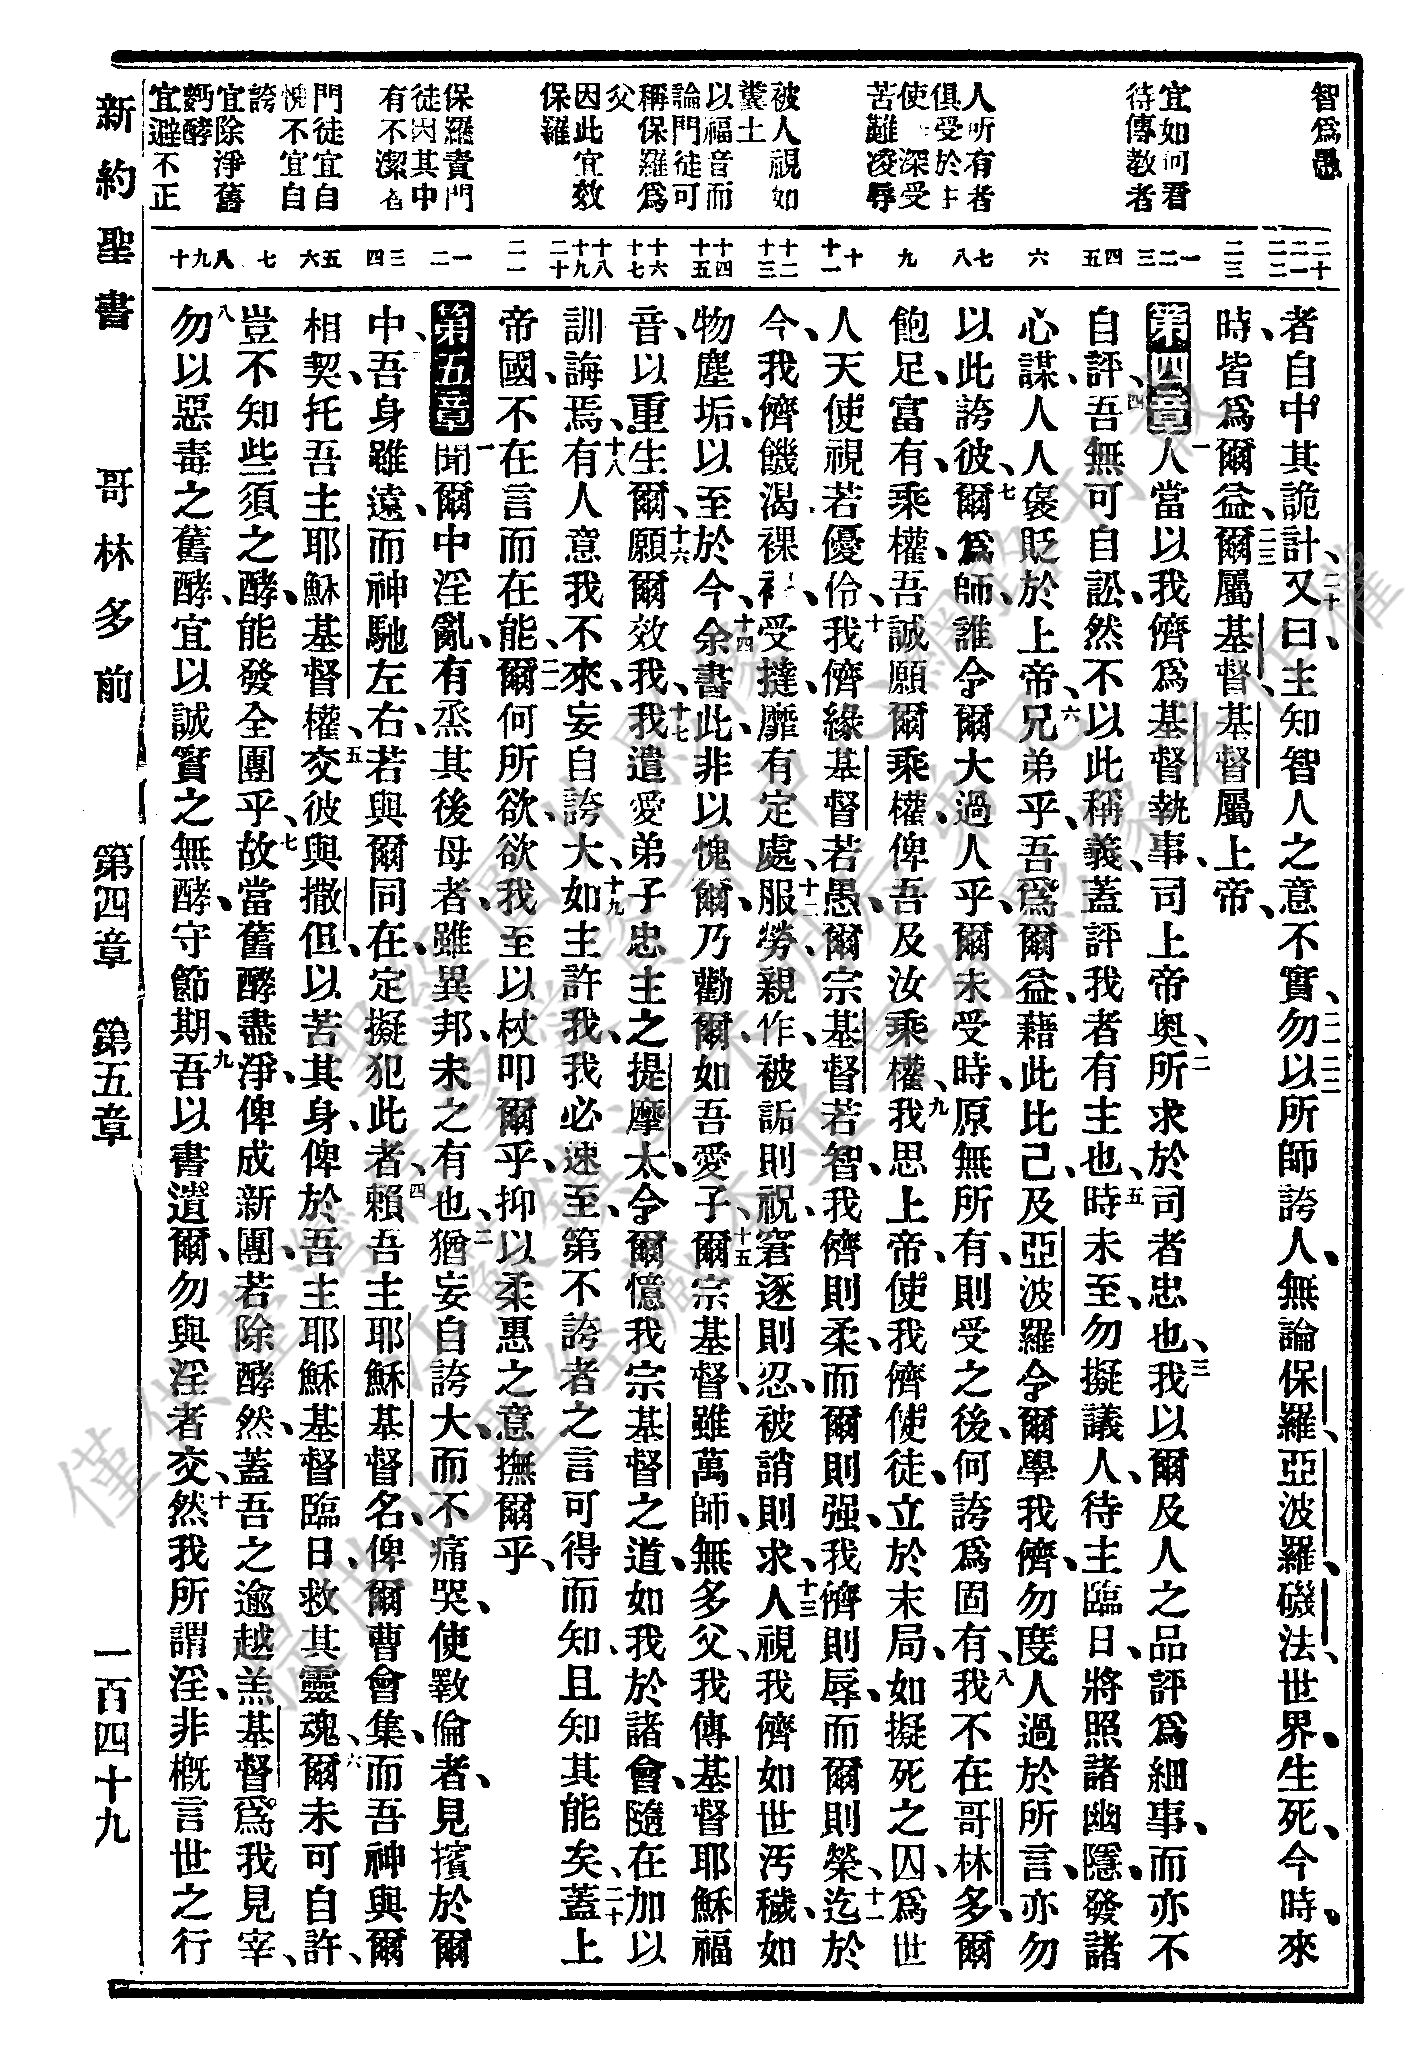 智爲愚
宜如何看
待傳教者
人所有者
俱受於主
使 深受
苦難凌辱
被人視如
糞土
以福音而
論門徒可
稱保羅爲
父
因此宜效
保羅
保羅責門
徒因其中
有不潔者
門徒宜自
愧不宜自
誇
宜除淨舊
麪酵
宜避不正
二十
二一
二二
二三
一
二
三
四
五
六
七
八
九
十
十一
十二
十三
十四
十五
十六
十七
十八
十九
二十
二一
一
二
三
四
五
六
七
八
九
十
者自中其詭計、二十又曰、主知智人之意不實、二一二二勿以所師誇人、無論保羅、亞波羅、磯法、世界、生死、今時、來
時、皆爲爾益、二三爾屬基督、基督屬上帝、
第四章一人當以我儕爲基督執事、司上帝奧、二所求於司者忠也、三我以爾及人之品評爲細事、而亦不
自評、四吾無可自訟、然不以此稱義、蓋評我者有主也、五時未至、勿擬議人、待主臨日、將照諸幽隱、發諸
心謀、人人褒貶於上帝、六兄弟乎、吾爲爾益、藉此比己、及亞波羅、令爾學我儕、勿度人過於所言、亦勿
以此誇彼、七爾爲師、誰令爾大過人乎、爾未受時、原無所有、則受之後、何誇爲固有、八我不在哥林多、爾
飽足、富有、乘權、吾誠願爾乘權、俾吾及汝乘權、九我思上帝、使我儕使徒、立於末局、如擬死之囚、爲世
人天使視若優伶、十我儕緣基督若愚、爾宗基督若智、我儕則柔、而爾則强、我儕則辱、而爾則榮、十一迄於
今、我儕饑渴裸裎、受撻、靡有定處、十二服勞、親作、被詬則祝、窘逐則忍、被誚則求、十三人視我儕如世汚穢、如
物塵垢、以至於今、十四余書此、非以愧爾、乃勸爾、如吾愛子、十五爾宗基督、雖萬師、無多父、我傳基督耶穌福
音、以重生爾、十六願爾效我、十七我遣愛弟子忠主之提摩太、令爾憶我宗基督之道、如我於諸會、隨在加以
訓誨焉、十八有人意我不來、妄自誇大、十九如主許我、我必速至、第不誇者之言可得而知、且知其能矣、二十蓋上
帝國、不在言而在能、二一爾何所欲、欲我至以杖叩爾乎、抑以柔惠之意撫爾乎、
第五章一聞爾中淫亂、有烝其後母者、雖異邦、未之有也、二猶妄自誇大、而不痛哭、使斁倫者、見擯於爾
中、三吾身雖遠、而神馳左右、若與爾同在、定擬犯此者、四賴吾主耶穌基督名、俾爾曹會集、而吾神與爾
相契、托吾主耶穌基督權、五交彼與撒但、以苦其身、俾於吾主耶穌基督臨日、救其靈魂、六爾未可自許、
豈不知些須之酵、能發全團乎、七故當舊酵盡淨、俾成新團、若除酵然、蓋吾之逾越羔基督、爲我見宰、
八勿以惡毒之舊酵、宜以誠實之無酵、守節期、九吾以書遺爾、勿與淫者交、十然我所謂淫、非概言世之行
新約聖書 哥林多前 第四章 第五章 一百四十九